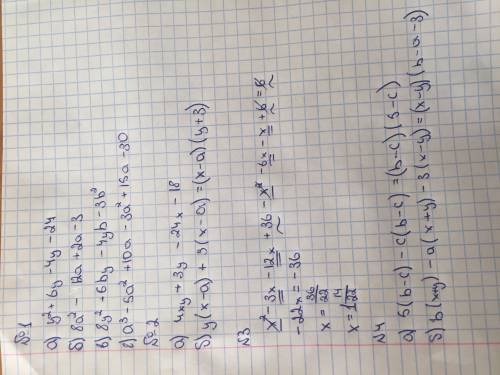 №1
а) y²+6y-4y-24
б) 8a²-12a+2a-3
в) 8y²+6by-4yb-3b²
г) a³-5a²+10a-3a²+15a-30
№2
а) 4xy+3y-24x-18
б) y(x-a)+3(x-a)=(x-a)(y+3)
№3
x²-3x-12x+36-x²-6x-x+6=6
-22x=-36
x=36/22
x=1 14/22
№4
а) 5(b-c)-c(b-c)=(b-c)(5-c)
б) b(x+y)-a(x+y)-3(x-y)=(x-y)(b-a-3)